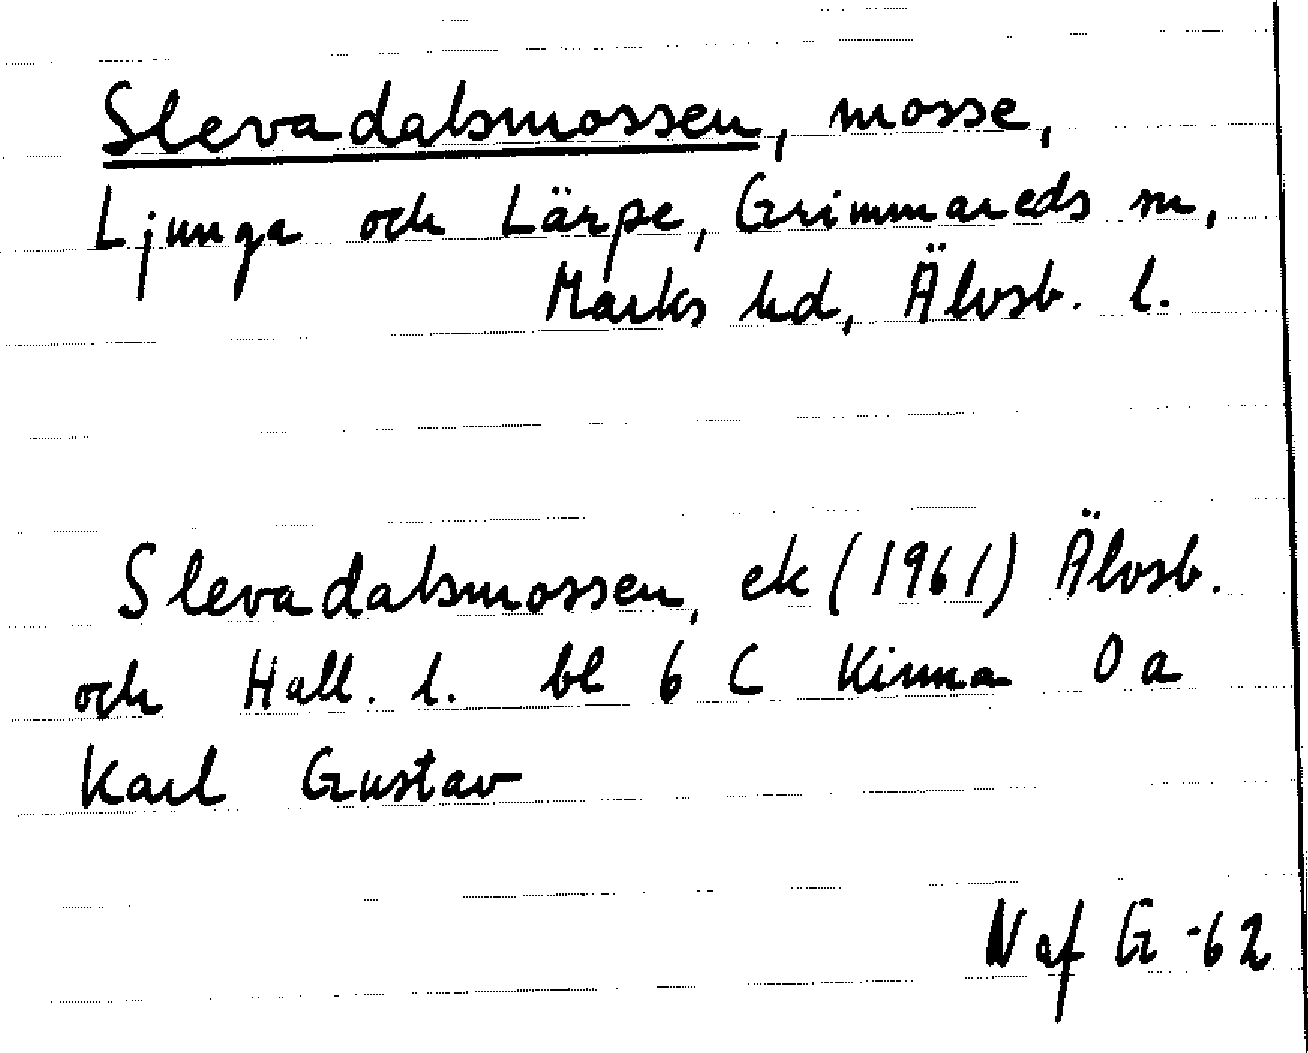 Slevadalsmossen, mosse,
Ljunga och Lärpe, Grimmareds sn,
Marks hd, Älvsb. l.
Slevadalsmossen, ek (1961) Älvsb.
och Hall. l. bl 6 C Kinna 0 a
Karl Gustav
N af G -62